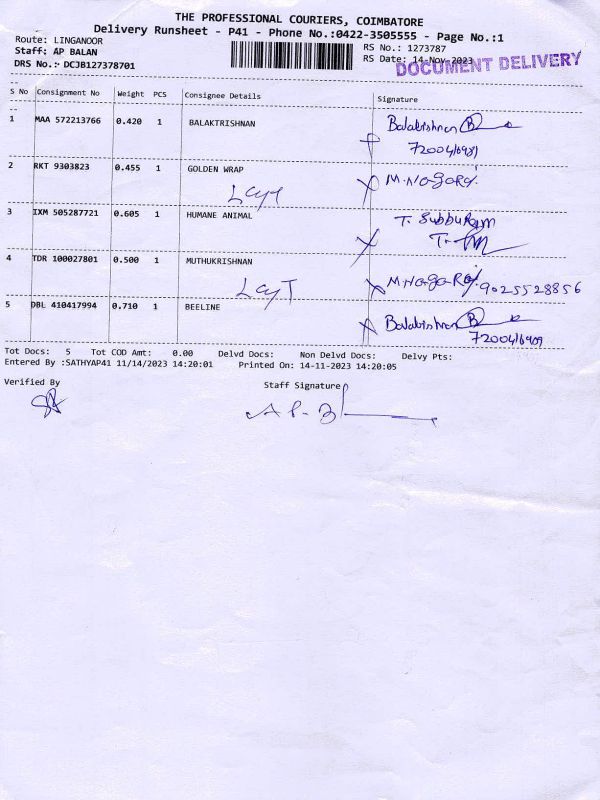 THE PROFESSIONAL COURIERS, COIMBATORE
Delivery Runsheet - P41 - Phone No.:0422-3505555 - Page No.:1
Route: LINGANOOR
RS No.: 1273787
Staff: AP BALAN
RS Date: 14-Nov-2023
DRS No.: DCJB127378701
DOCUMENT DELIVERY
S No Consignment No Weight PCS Consignee Details Signature
1 MAA 572213766 0.420 1 BALAKTRISHNAN Balakrishnan
2 RKT 9303823 0.455 1 GOLDEN WRAP M.Nagaraj
3 IXM 505287721 0.605 1 HUMANE ANIMAL T. Subburam
4 TDR 100027801 0.500 1 MUTHUKRISHNAN M.Nagaraj 9025528856
5 DBL 410417994 0.710 1 BEELINE Balakrishnan
Tot Docs: 5 Tot COD Amt: 0.00 Delvd Docs: Non Delvd Docs: Delvy Pts:
Entered By :SATHYAP41 11/14/2023 14:20:01 Printed On: 14-11-2023 14:20:05
Verified By Staff Signature